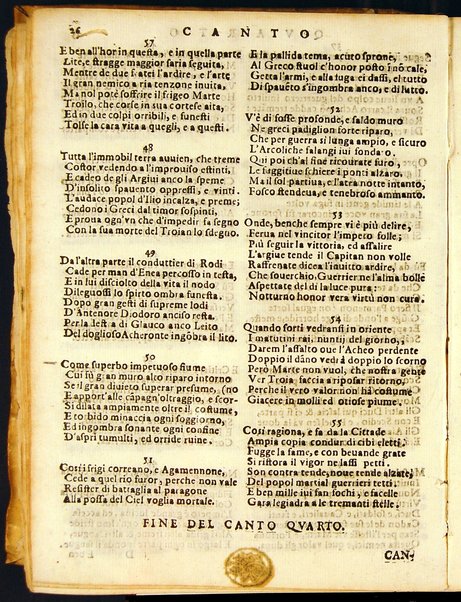 26
C A N T O
57
E ben all'hor in questa, e in quella parte
Lite, e stragge maggior saria seguita,
Mentre de due fratei l'ardire, e l'arte
Il gran nemico a ria tenzone inuita,
Ma nol potè soffrire il frigeo Marte
Troilo, che corse in sua cortese aita,
Ed in due colpi orribili, e funesti
Tolse la cara vita a quegli, e a questi.
48
Tutta l'immobil terra auuien, che treme
Costor vedendo a l'improuiso estinti,
E cadeo de gli Argiui anco la speme
D'insolito spauento oppressi, e vinti.
L'audace popol d'Ilio incalza, e preme;
Cedono i Greci dal timor sospinti,
E proua ogn'vn che d'impedir fa segno
Con la sua morte del Troian lo sdegno.
49
Da l'altra parte il conduttier di Rodi
Cade per man d'Enea percosso in testa,
E in lui disciolto della vita il nodo
Dileguossi lo spirto ombra funesta.
Dopo gran gesti di supreme lodi
D'Antenore Diodoro anciso resta.
Per la destra di Glauco anco Leito
Del doglioso Acheronte ingôbra il lito.
50
Come superbo impetuoso fiume
Cui fù gran muro alto riparo intorno
Se il gran diuieto superar presume, (no
E apport'alle câpagn'oltraggio, e scor-
Si dilata ampiamente oltre il costume,
E torbido minaccia ogni soggiorno,
Ed ingombra sonante ogni confine
D'aspri tumulti, ed orride ruine.
51
Così i frigi correano, e Agamennone,
Cede a quel rio furor, perche non vale
Resister di battaglia al paragone
Alla possa del Ciel voglia mortale.
E la pallida tema, acuto sprone,
Al Greco stuol c'honor posto hà nô cale,
Getta l'armi, e alla fuga ei dassi, el tutto
Di spauēto s'ingombra anco, e di lutto.
52
V'è di fosse profonde, e saldo muro
Ne greci padiglion forte riparo,
Che per guerra sì lunga ampio, e sicuro
L'Arcoliche falangi iui fondaro.
Qui poi ch'ai fine ricourate furo,
Le fuggitiue schiere i ponti alzaro.
Ma il sol partiua, e l'atra notte intanto,
Fosco stendeua, e tenebroso ammanto.
53
Onde, benche sempre vi è più delire,
Ferua nel vincitor l'impeto folle;
Più seguir la vittoria, ed assalire
L'argiue tende il Capitan non volle
Raffrenate dicea l'inuitto ardire,
Che souerchio, Guerrier ne l'alma bolle
Aspettate del dì la luce pura:
Notturno honor vera virtù non cura.
54
Quando sorti vedransi in oriente,
I matutini rai, nuntij del giorno,
Darem l'assalto oue l'Acheo perdente
Doppio il dāno vedrà doppio lo scorno
Però Marte non vuol, che nostra gente
Ver Troia faccia a riposar ritorno,
Perche il vero valor non hà costume
Giacere in molli ed otiose piume.
55
Così ragiona, e fa da la Cittade
Ampia copia condur di cibi eletti,
Fugge la fame, e con beuande grate
Si ristora il vigor ne lassi petti.
Son contra tende, noue tende alzate,
Del popol martial guerrieri tetti:
E ben mille iui san fochi, e facelle
Gara legiadra a le tremanti stelle:
FINE DEL CANTO QVARTO.
CAN-